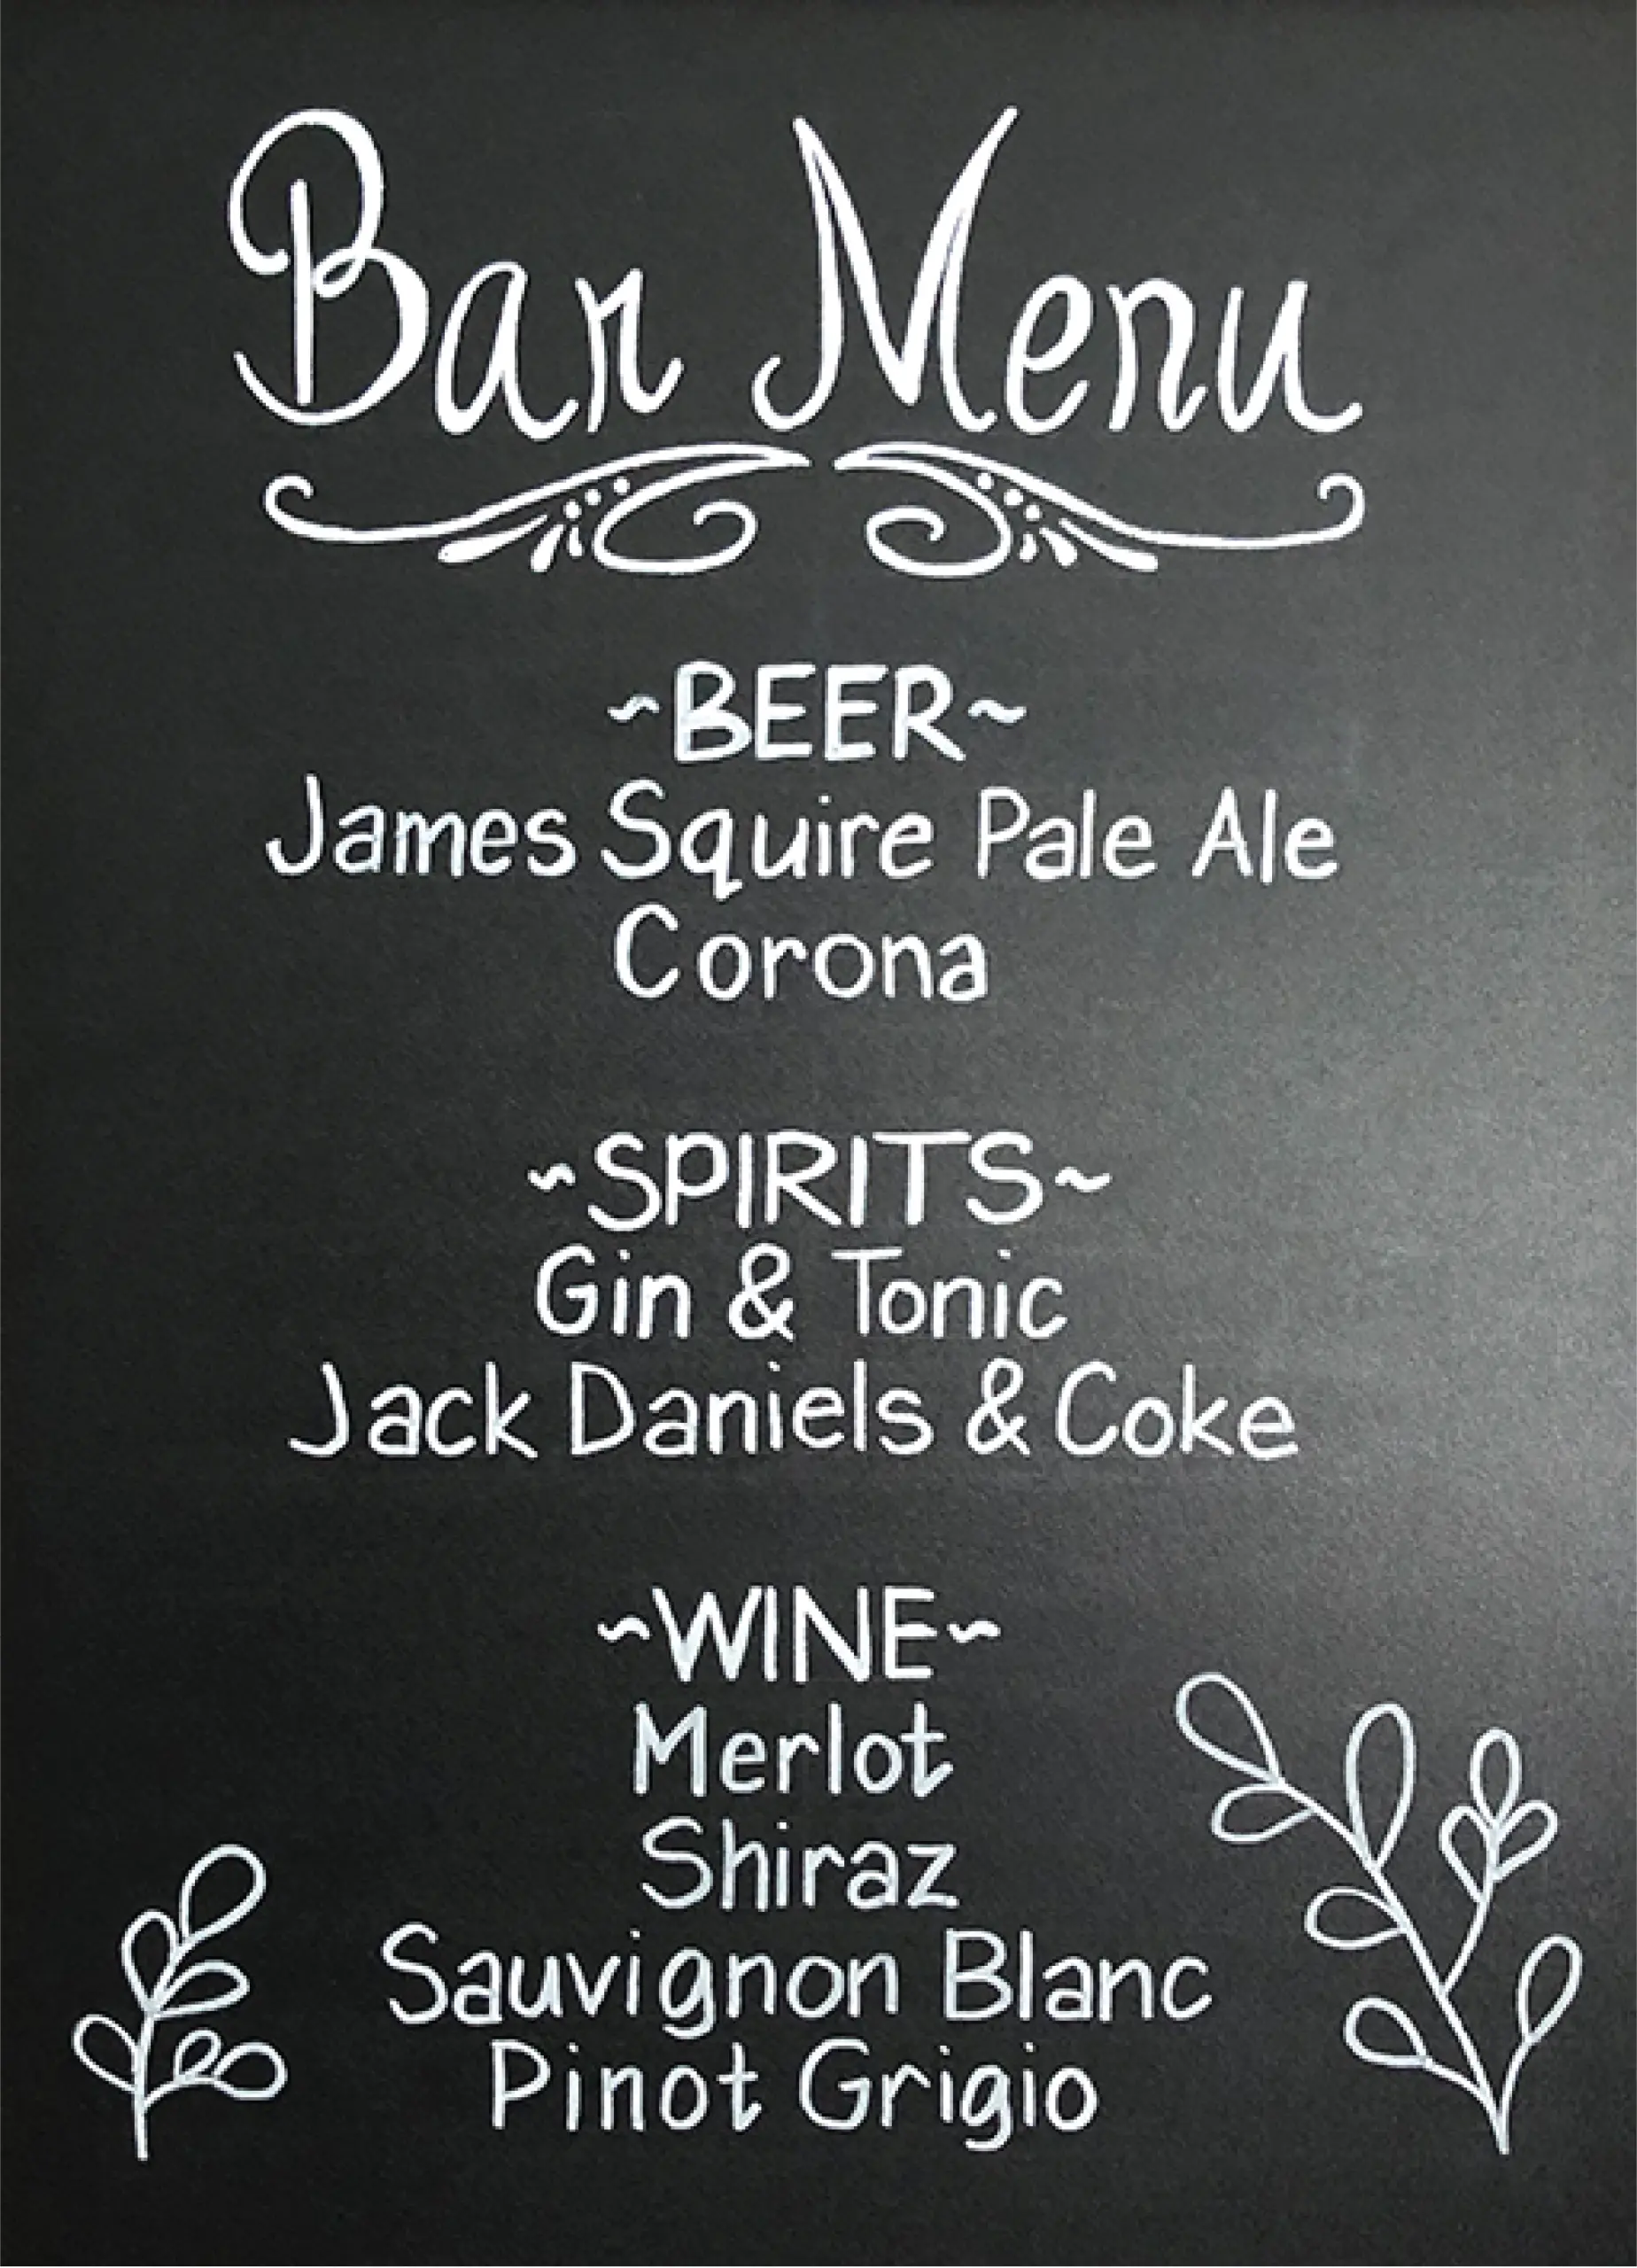 Bar Menu
~BEER~
James Squire Pale Ale
Corona
~SPIRITS~
Gin & Tonic
Jack Daniels & Coke
~WINE~
Merlot
Shiraz
Sauvignon Blanc
Pinot Grigio